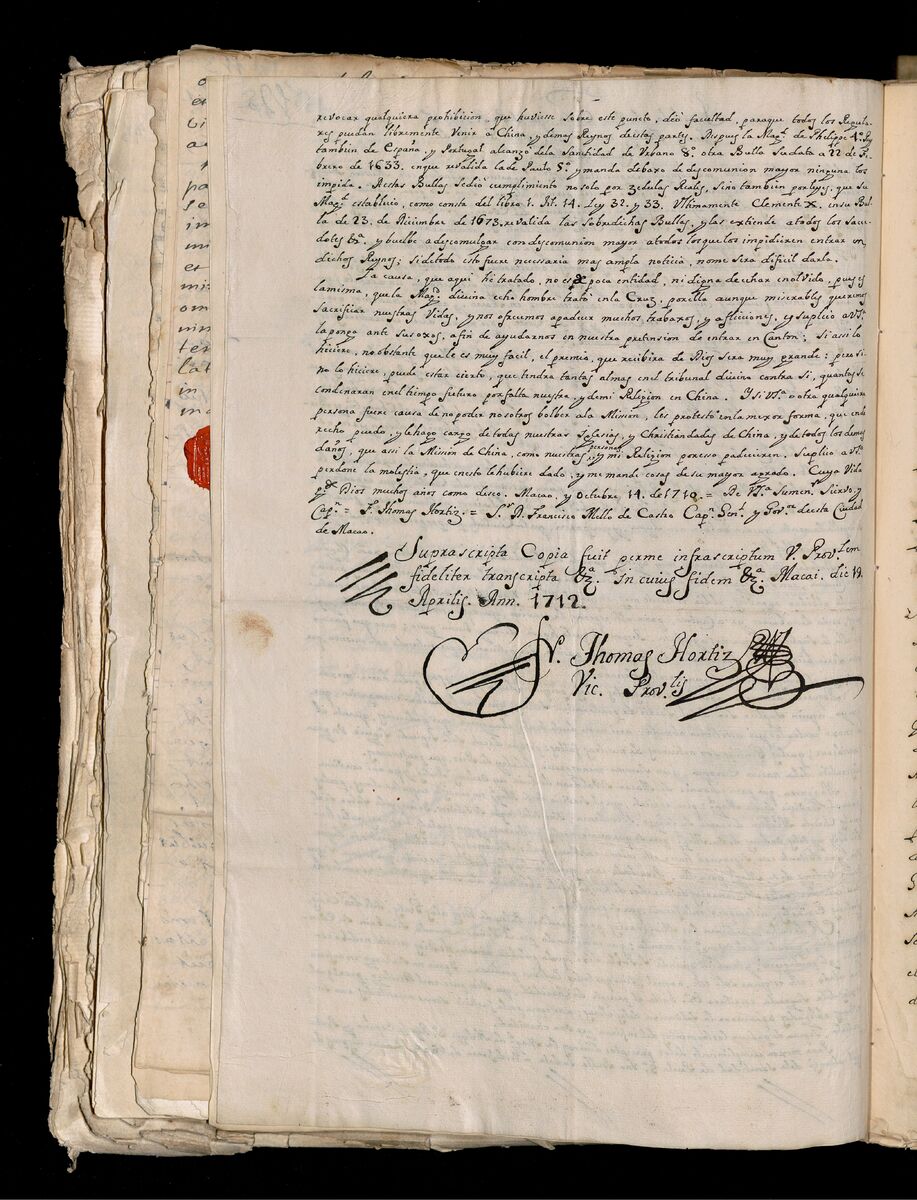 revocar qualquiera prohibicion, que huviesse sobre este punto, dió facultad, paraque todos los Regula-
res puedan libremente venir á China, y demas Reynos de estas partes. Despues la Mag.d de Philipe 4.º Rey
tambien de España, y Portugal alcanzó de la Santidad de Urbano 8.º otra Bulla su data a 22 de Fe-
brero de 1633. en que revalida la de Paulo 5.º y manda debaxo de descomunion mayor ninguno los
impida. A estas Bullas se dió cumplimiento no solo por Zedulas Reales, sino tambien por leyes, que su
Mag.d establecio, como consta del libro 1. tit. 14. Ley 32. y 33. Ultimamente Clemente X. en su Bu-
la de 23. de Diciembre de 1673. revalida las sobredichas Bullas, y las extiende a todos los Sacer-
dotes &.ª y buelbe a descomulgar con descomunion mayor a todos los que los impidieren entrar en
dichos Reynos; si de todo esto fuere necessaria mas ampla noticia, no me sera dificil darla.
La causa, que aqui hé tratado, no es de poca entidad, ni digna de echar en olvido, pues es
la misma, que la Mag.d divina echo hombre trató en la Cruz, por ella aunque miserables queremos
sacrificar nuestras vidas, y nos ofrecemos a padecer muchos trabaxos, y aflicciones, y suplico a VS.ª
la ponga ante sus oxos, afin de ayudarnos en nuestra pretension de entrar en Canton; si assi lo
hiciere, no obstante que le es muy facil, el premio, que recibira de Dios sera muy grande: pero si
no lo hiciere, puede estar cierto, que tendra tantas almas en el tribunal divino contra si, quantas se
condenaran en el tiempo futuro por falta nuestra, y de mi Religion en China. Y si VS.ª o otra qualquiera
persona fuere causa de no poder nosotros bolber a la Mission, les protesto en la mexor forma, que en de-
recho puedo, y le hago cargo de todas nuestras Iglesias, y Christiandades de China, y de todos los demas
daños, que assi la Mission de China, como nuestras personas, y mi Religion por esso padecieren. Suplico a VS.ª
perdone la molestia, que en esto le hubiere dado, y me mande cosas de su mayor agrado. Cuya Vida
g.de Dios muchos años como deseo. Macao, y Octubre 14. de 1710. = De VS.ª su men.r Siervo, y
Cap.n = F. Thomas Hortiz. = S.r D. Francisco Mello de Castro Cap.n Gen.l y Gov.or de esta Ciudad
de Macao.
Suprascripta Copia fuit per me infrascriptum V. Prov.lem
fideliter transcripta &.ª In cuius fidem &.ª Macai. die 19.
Aprilis. Ann. 1712.
Fr. Thomas Hortiz
Vic. Prov.lis